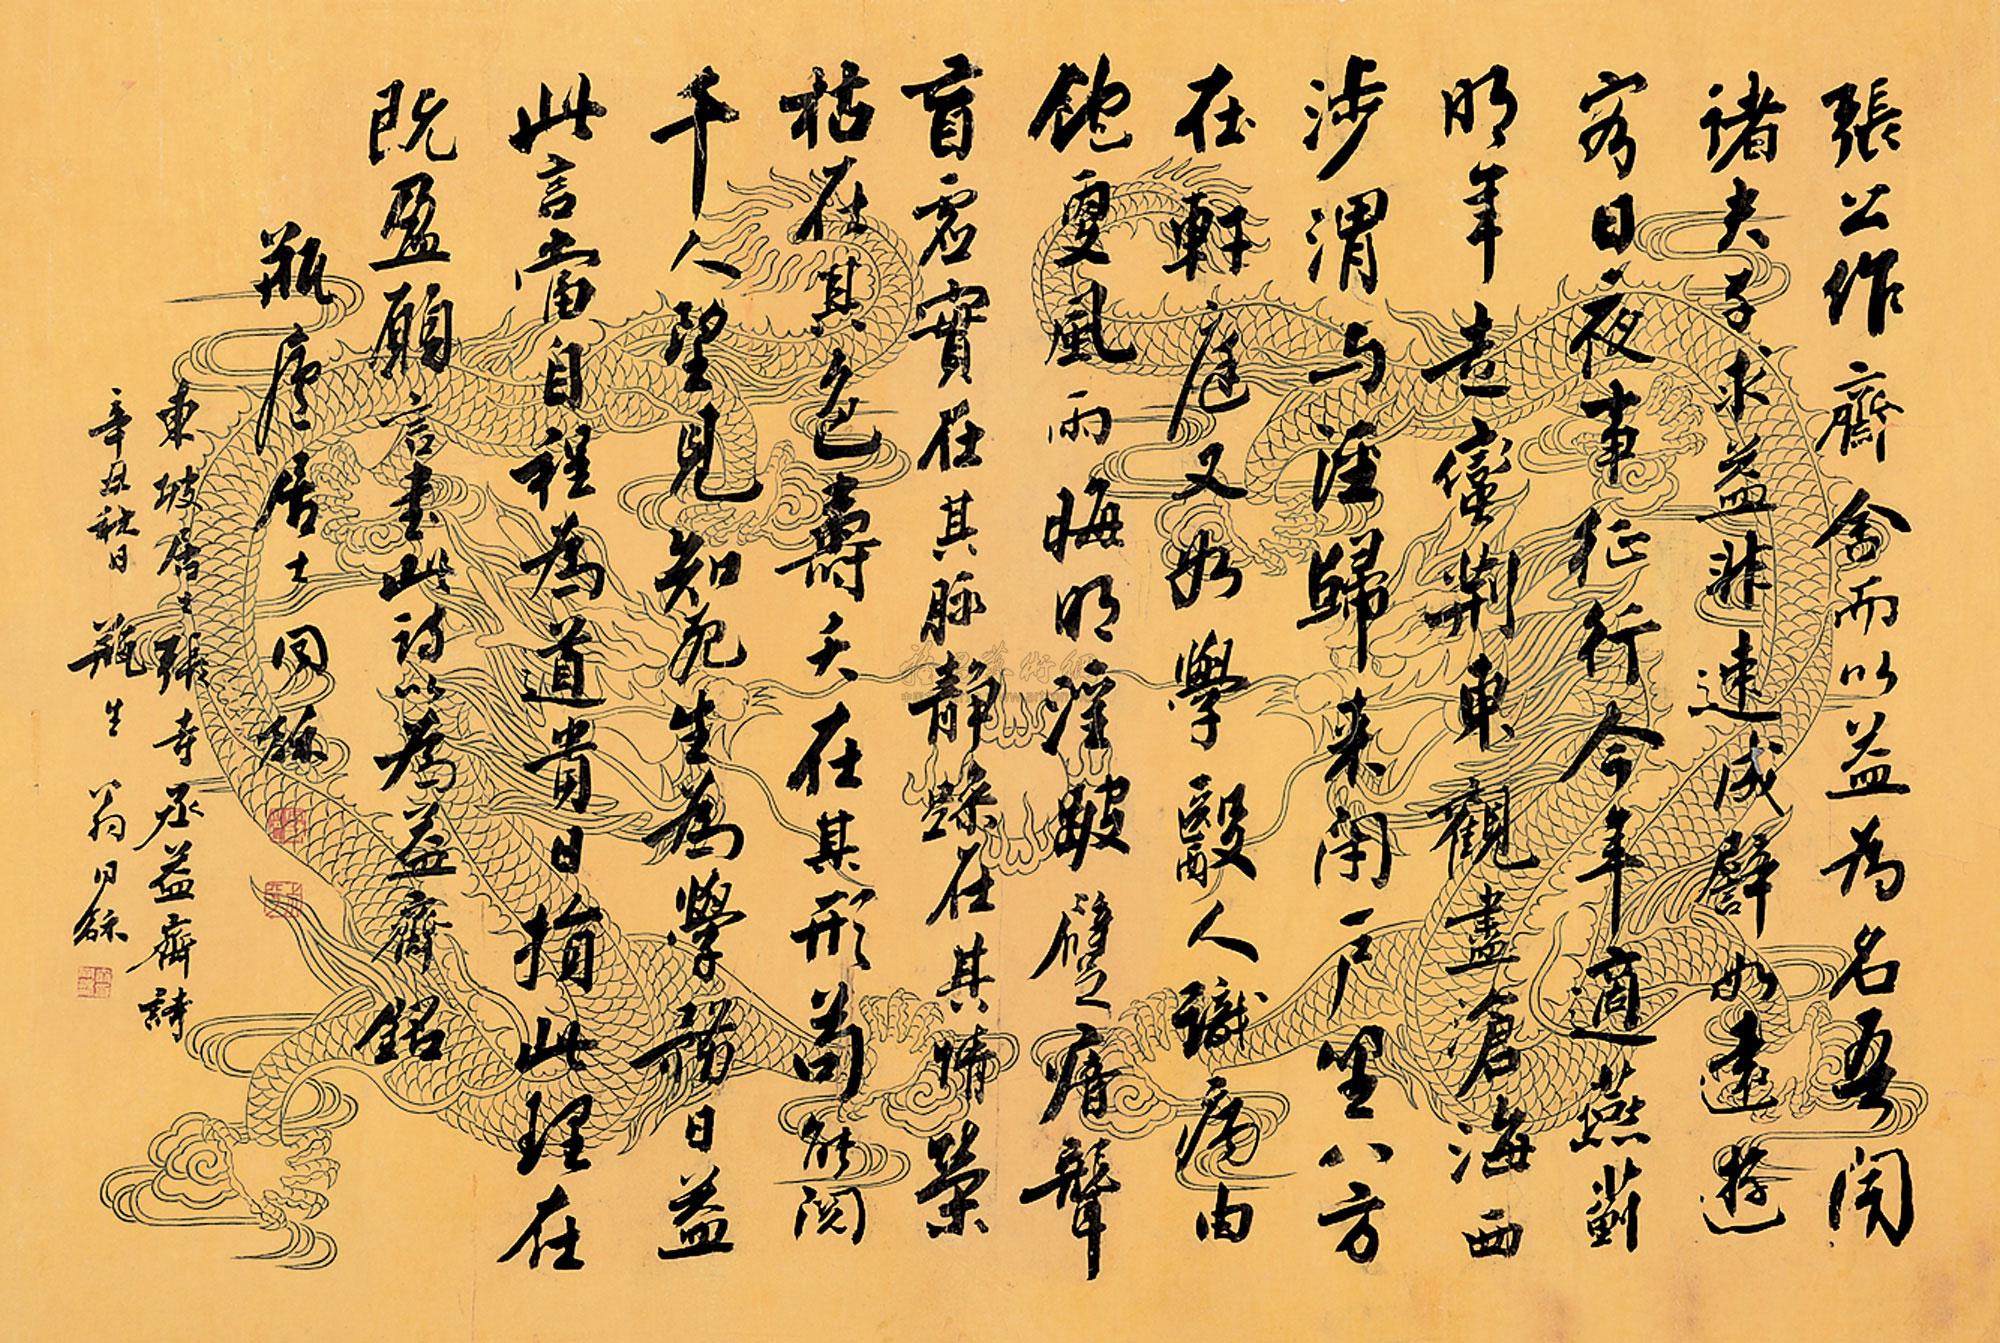 張公作齋舍而以益為名吾聞
諸夫子求益非速成譬如遠遊
客日夜事征行今年適燕薊
明年走蠻荊東觀盡滄海西
涉渭与涇歸来閉戶坐八方
在軒庭又如學醫人識病由
飽更風雨晦明淫跛躄瘖聾
盲虛實在其脉靜躁在其情榮
枯在其色壽夭在其形苟能閱
千人望見知死生為學務日益
此言當自程為道貴日損此理在
既盈願言書此詩以為益齋銘
瓶廬居士同龢
東坡居士張寺丞益齋詩
辛丑秋日 瓶生翁同龢